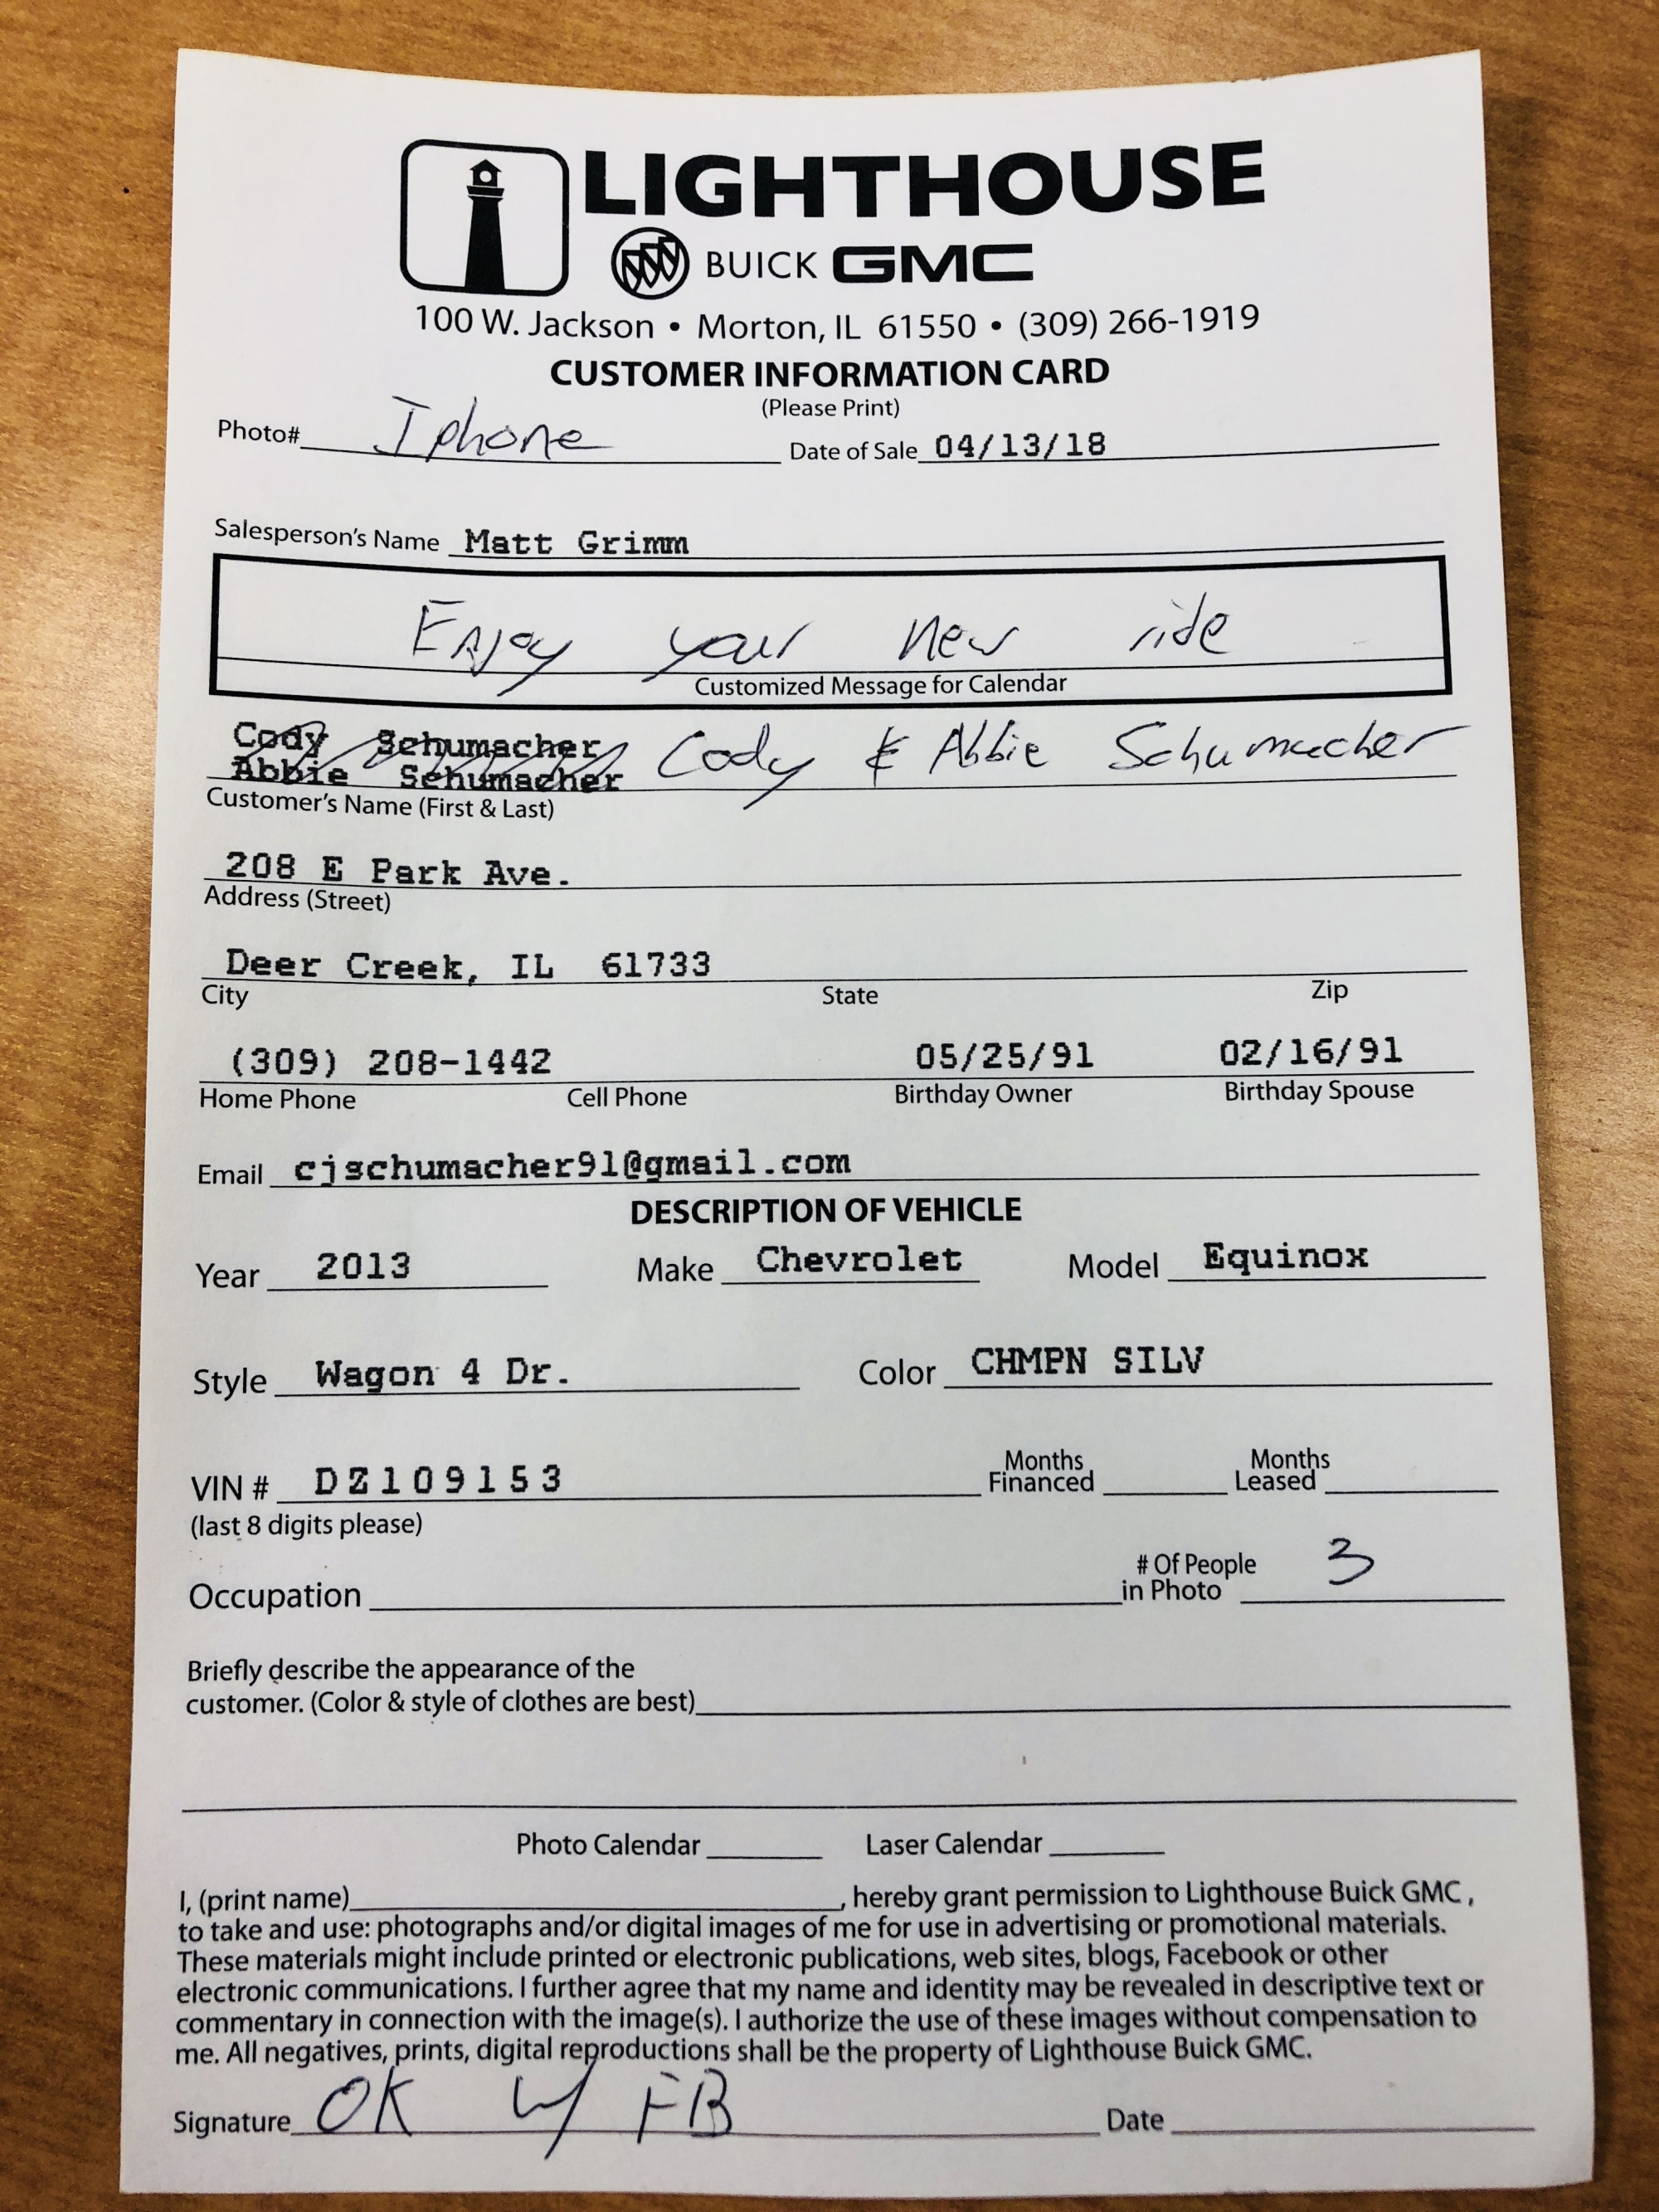 LIGHTHOUSE
BUICK GMC
100 W. Jackson • Morton, IL 61550 • (309) 266-1919
CUSTOMER INFORMATION CARD
(Please Print)
Photo# Iphone Date of Sale 04/13/18
Salesperson's Name Matt Grimm
Enjoy your new ride
Customized Message for Calendar
Cody Schumacher
Abbie Schumacher Cody & Abbie Schumacher
Customer's Name (First & Last)
208 E Park Ave.
Address (Street)
Deer Creek, IL 61733
City State Zip
(309) 208-1442 05/25/91 02/16/91
Home Phone Cell Phone Birthday Owner Birthday Spouse
Email cjschumacher91@gmail.com
DESCRIPTION OF VEHICLE
Year 2013 Make Chevrolet Model Equinox
Style Wagon 4 Dr. Color CHMPN SILV
VIN # DZ109153 Months Financed Months Leased
(last 8 digits please)
Occupation # Of People in Photo 3
Briefly describe the appearance of the
customer. (Color & style of clothes are best)
Photo Calendar Laser Calendar
I, (print name) , hereby grant permission to Lighthouse Buick GMC,
to take and use: photographs and/or digital images of me for use in advertising or promotional materials.
These materials might include printed or electronic publications, web sites, blogs, Facebook or other
electronic communications. I further agree that my name and identity may be revealed in descriptive text or
commentary in connection with the image(s). I authorize the use of these images without compensation to
me. All negatives, prints, digital reproductions shall be the property of Lighthouse Buick GMC.
Signature OK w/ FB Date